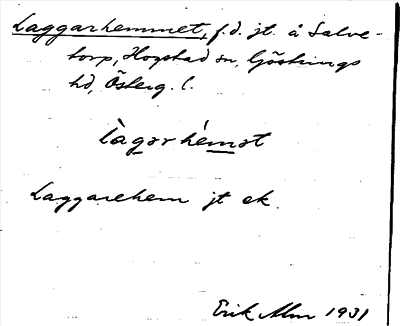 Laggarhemmet, f.d. jt. å Salve-
torp, Hogstad sn, Göstrings
hd, Österg. l.
làgərhémət
Laggarehem jt ek.
Erik Alm 1931